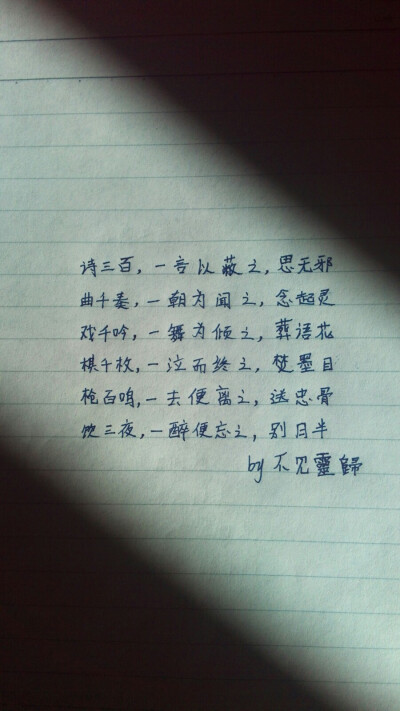 诗三百，一言以蔽之，思无邪
曲千奏，一朝为闻之，念起灵
戏千吟，一舞为倾之，葬语花
棋千枚，一泣而终之，焚墨目
枪百鸣，一去便离之，送忠骨
饮三夜，一醉便忘之，别日半
by 不见靈歸